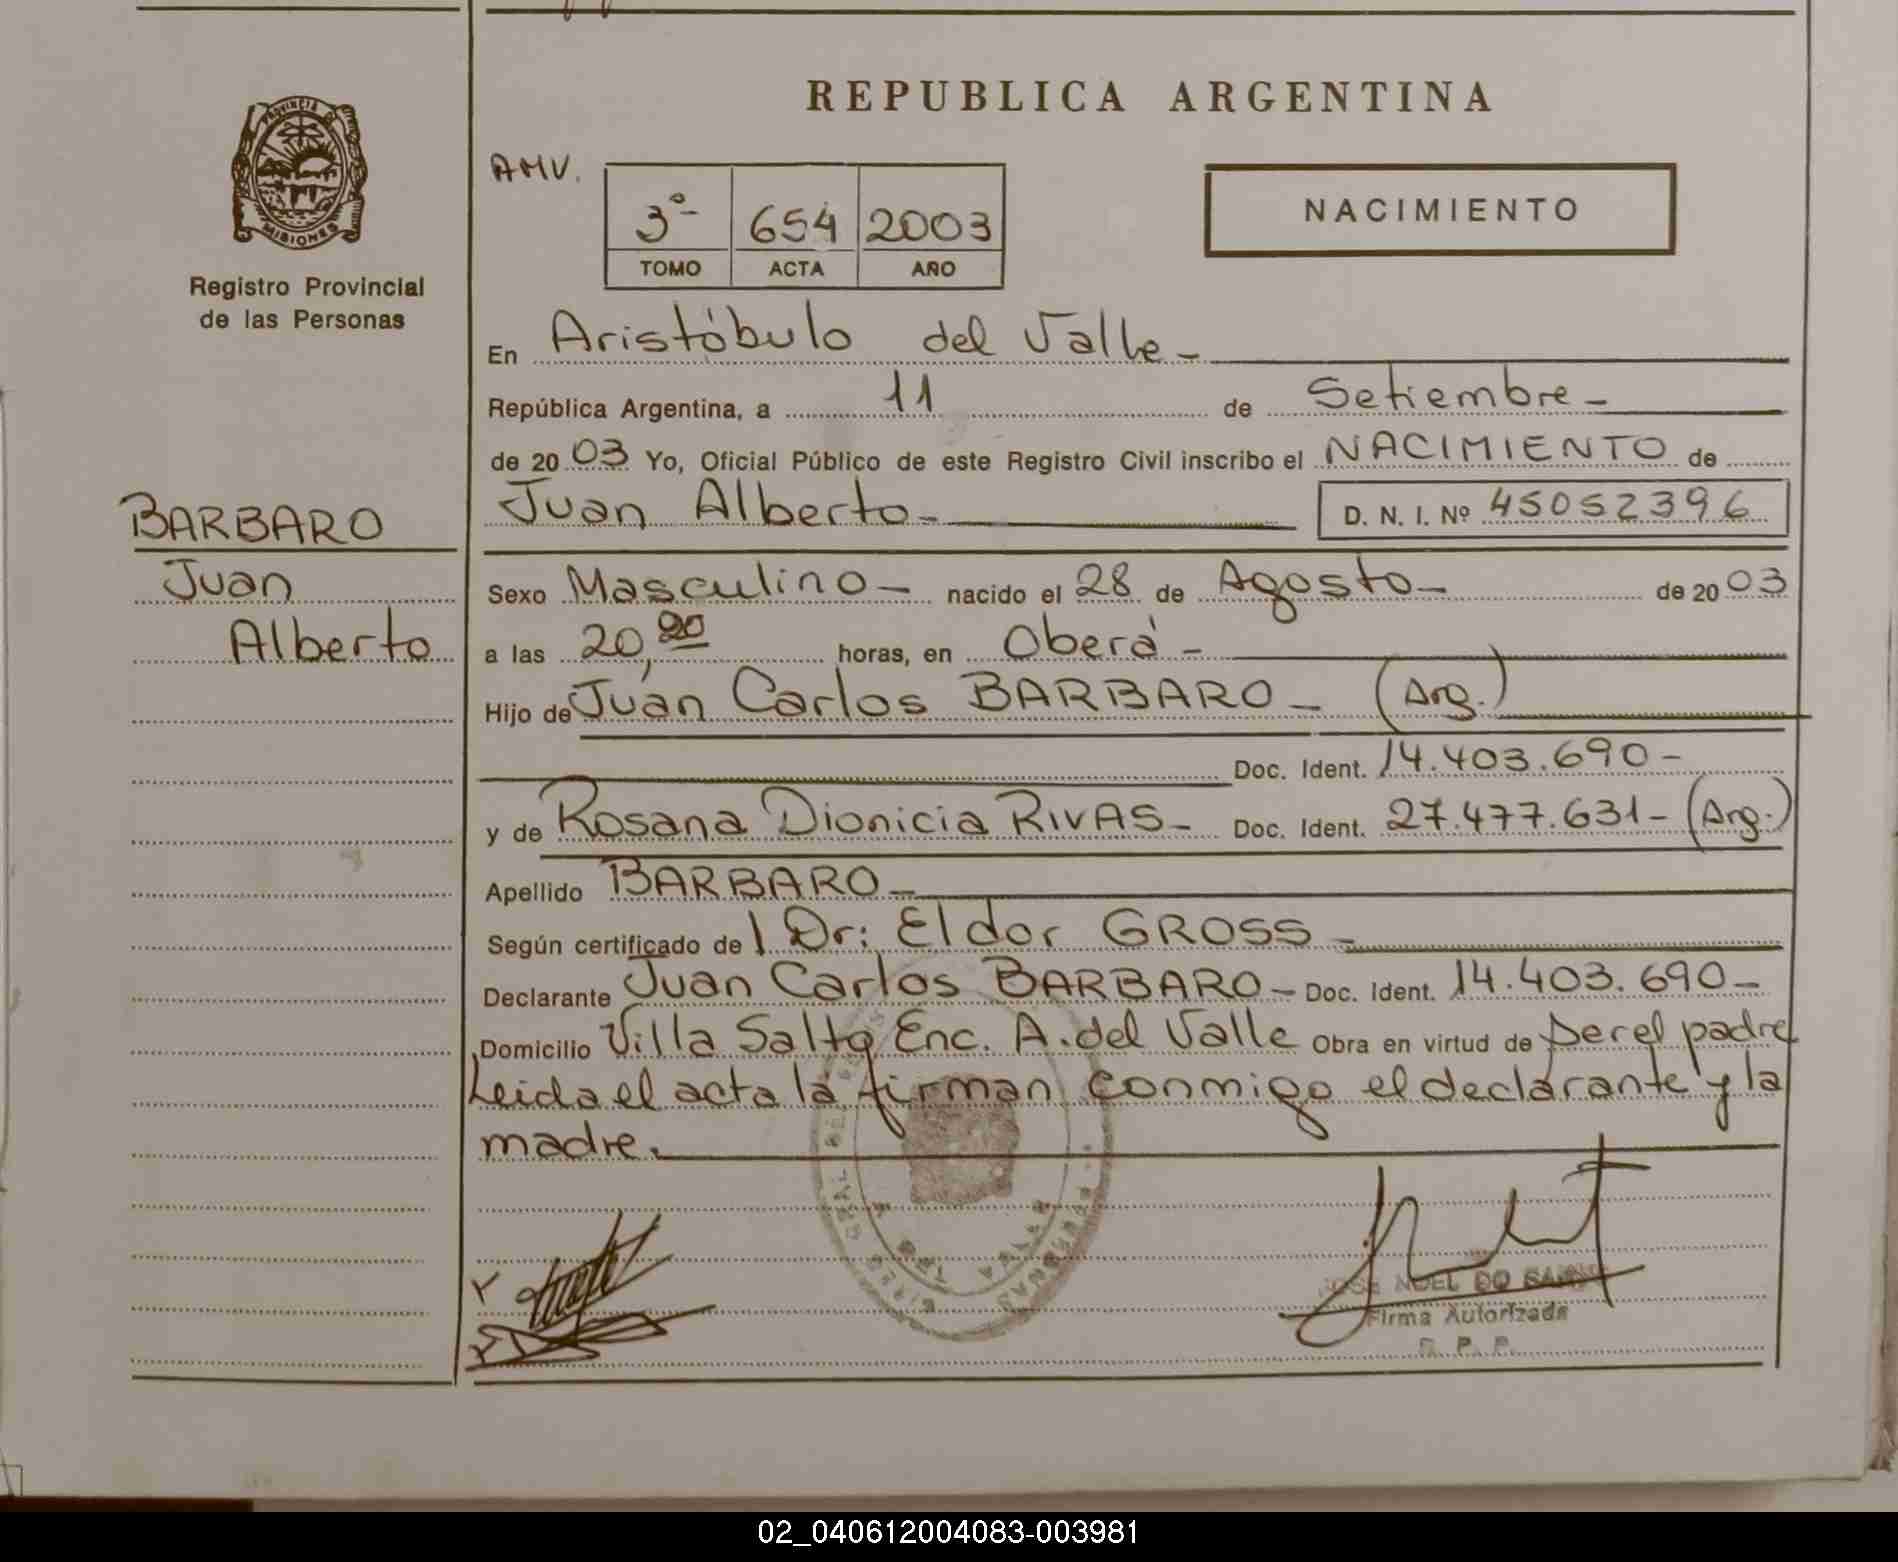 REPUBLICA ARGENTINA
PROVINCIA DE
MISIONES
Registro Provincial
de las Personas
AMV.
3º 654 2003
TOMO ACTA AÑO
NACIMIENTO
En Aristóbulo del Valle -
República Argentina, a 11 de Setiembre -
de 20 03 Yo, Oficial Público de este Registro Civil inscribo el NACIMIENTO de
Juan Alberto - D. N. I. Nº 45052396
BARBARO
Juan
Alberto
Sexo Masculino - nacido el 28 de Agosto - de 20 03
a las 20, horas, en Oberá -
Hijo de Juan Carlos BARBARO - (Arg.)
Doc. Ident. 14.403.690 -
y de Rosana Dionicia RIVAS - Doc. Ident. 27.477.631 - (Arg.)
Apellido BARBARO -
Según certificado de Dr: Eldor GROSS -
Declarante Juan Carlos BARBARO - Doc. Ident. 14.403.690 -
Domicilio Villa Salto Enc. A. del Valle Obra en virtud de ser el padre
Leida el acta la firman conmigo el declarante y la
madre.
JOSE NOEL DO
Firma Autorizada
R. P. P.
02_040612004083-003981